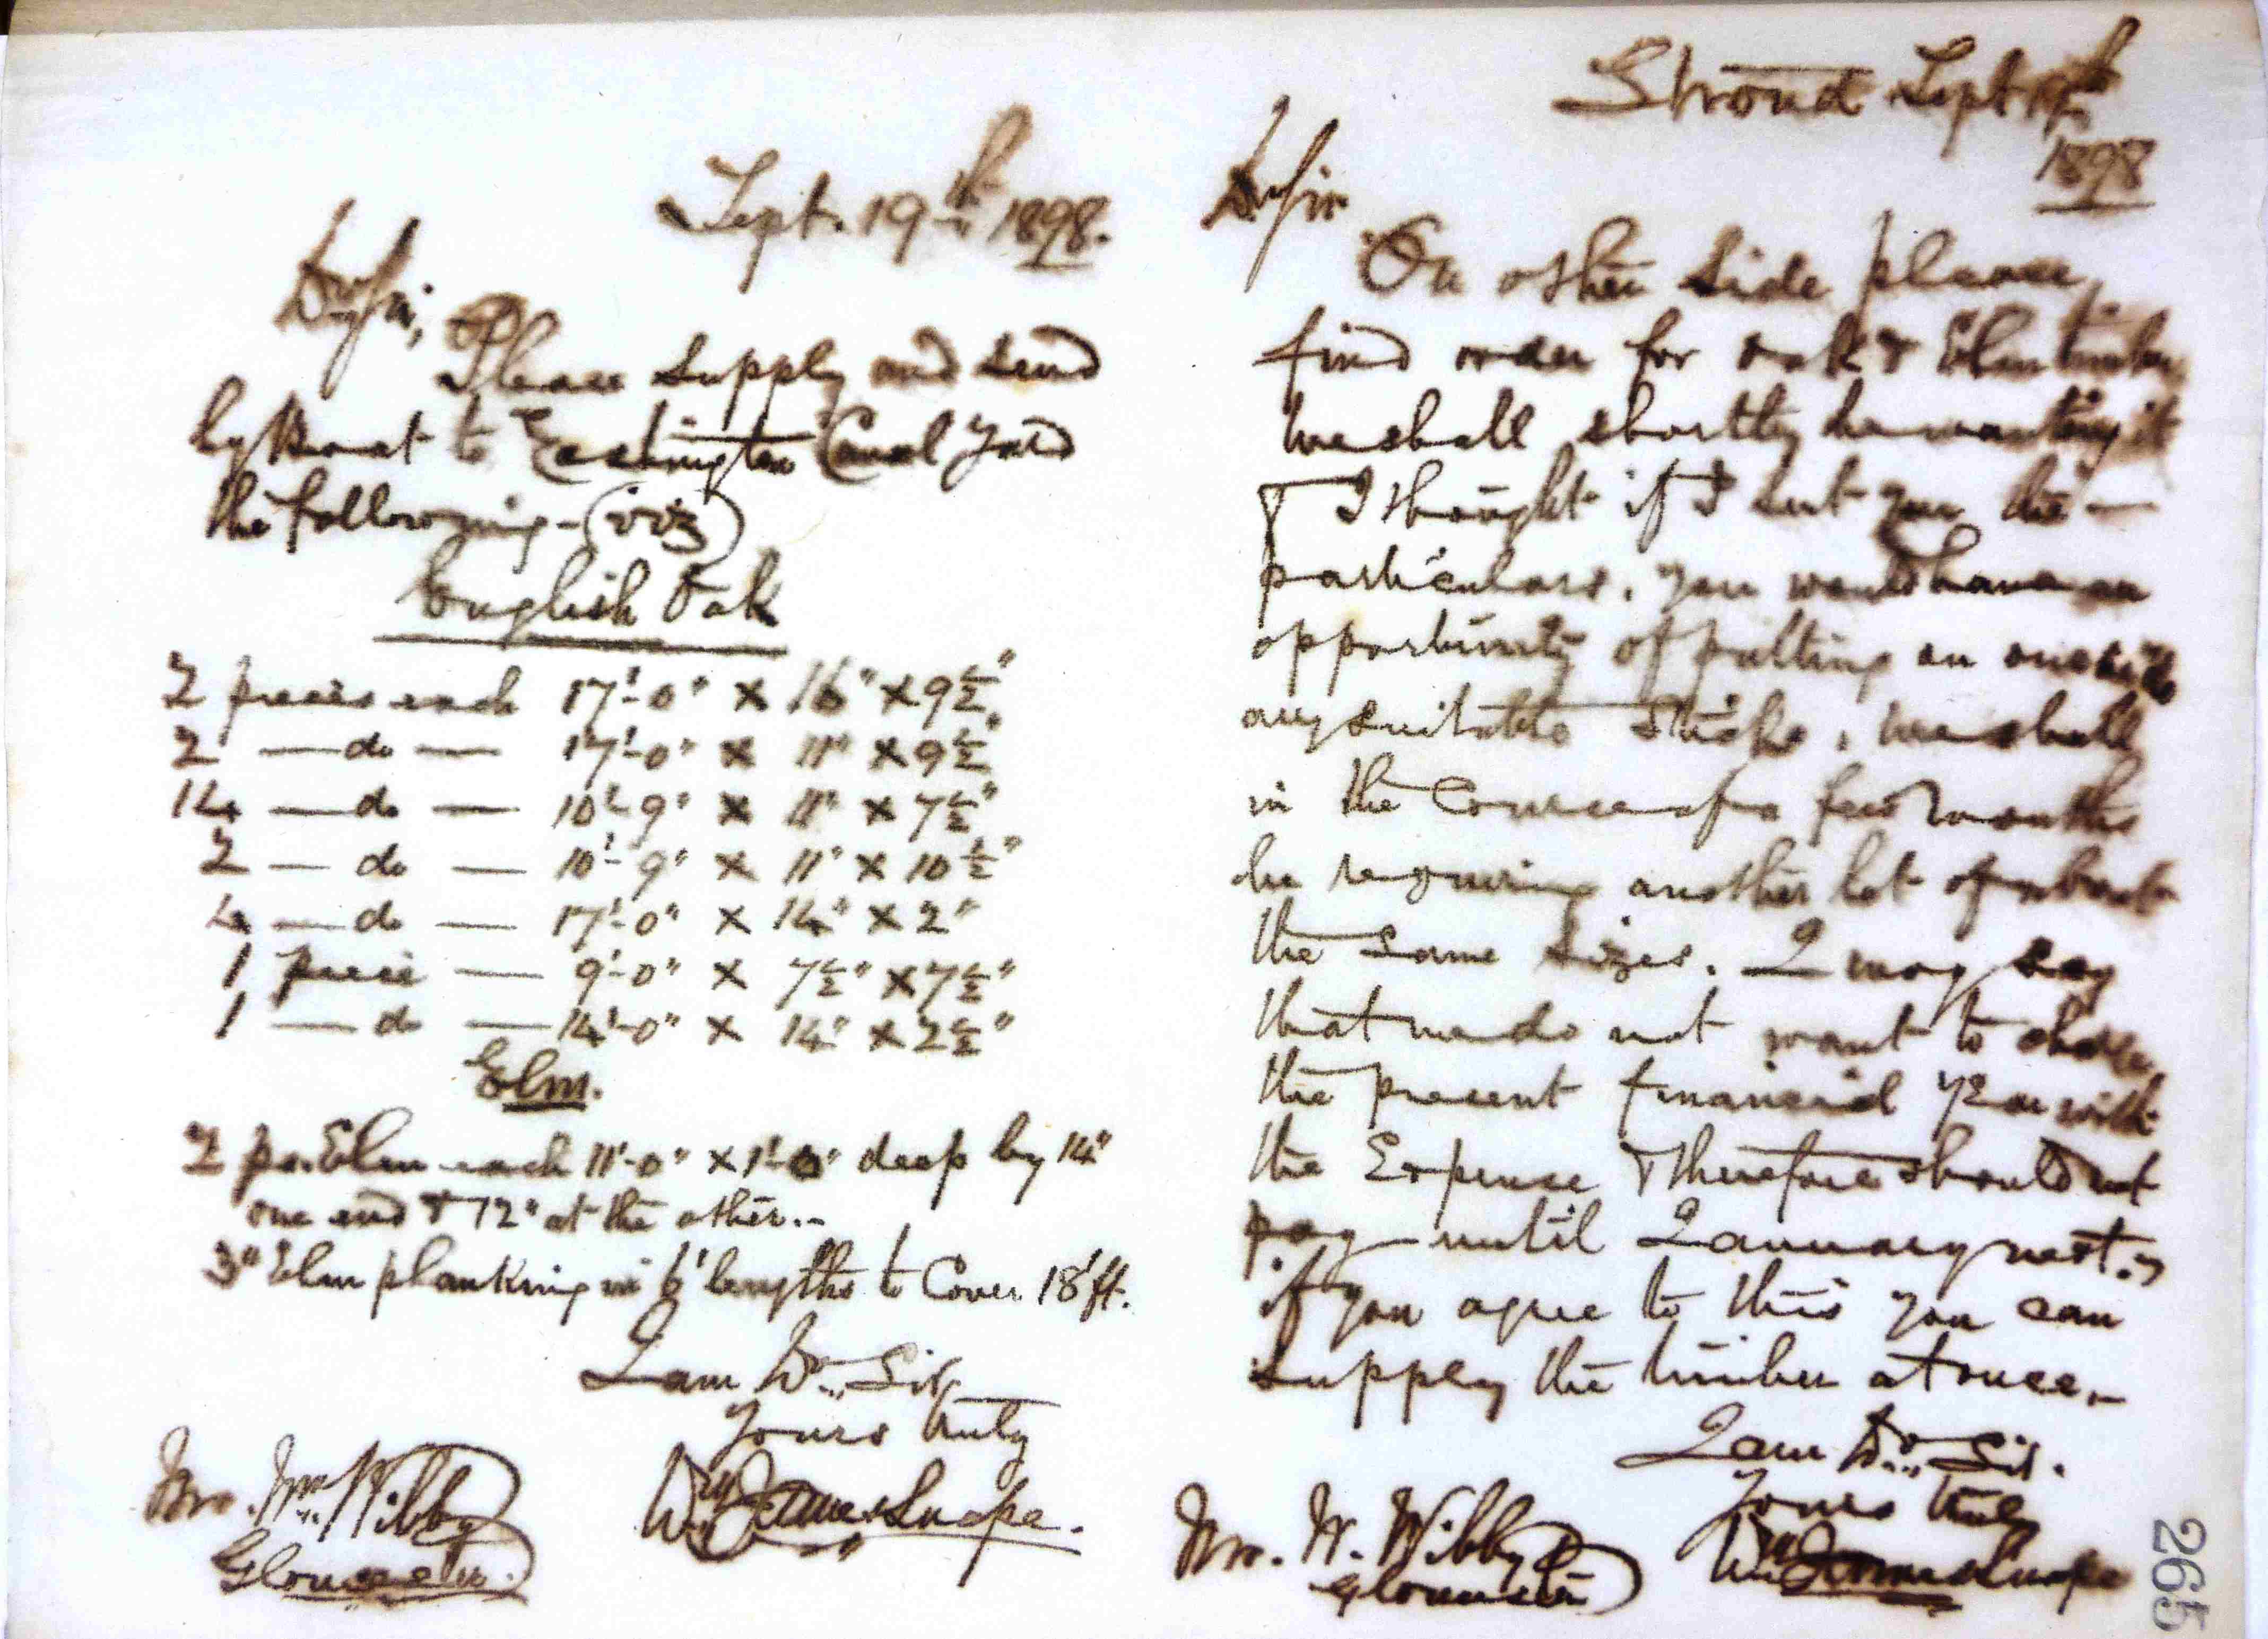 Sept. 19th 1898.
Dr Sir,
Please supply and send
by Boat to Eastington Canal Yard
the following - (viz)
English Oak
2 pieces each 17'-0" x 16" x 9½"
2 — do — 17'-0" x 11" x 9½"
14 — do — 10'-9" x 11" x 7½"
2 — do — 10'-9" x 11" x 10½"
4 — do — 17'-0" x 14" x 2"
1 piece — 9'-0" x 7½" x 7½"
1 — do — 14'-0" x 14" x 2½"
Elm.
2 ps. Elm each 11'-0" x 1'-6" deep by 14"
one end & 12" at the other.-
3" Elm planking in 6' lengths to Cover 18'ft.
I am Dr Sir
Yours truly
Wm James Snape.
Mr. Wm. Wibby
Gloucester.
Stroud Sept 19th
1898
Dr Sir
On other side please
find order for oak & Elm timber
we shall shortly be wanting it
& I thought if I sent you the —
particulars, you would have an
opportunity of putting on one side
any suitable sticks, we shall
in the course of a few months
be requiring another lot of about
the same sizes. I may say
that we do not want to charge
the present financial year with
the Expense & therefore should not
pay until January next.,
if you agree to this you can
supply the timber at once.-
I am Dr Sir.
Yours truly
Wm James Snape
Mr. W. Wibby
Gloucester
265